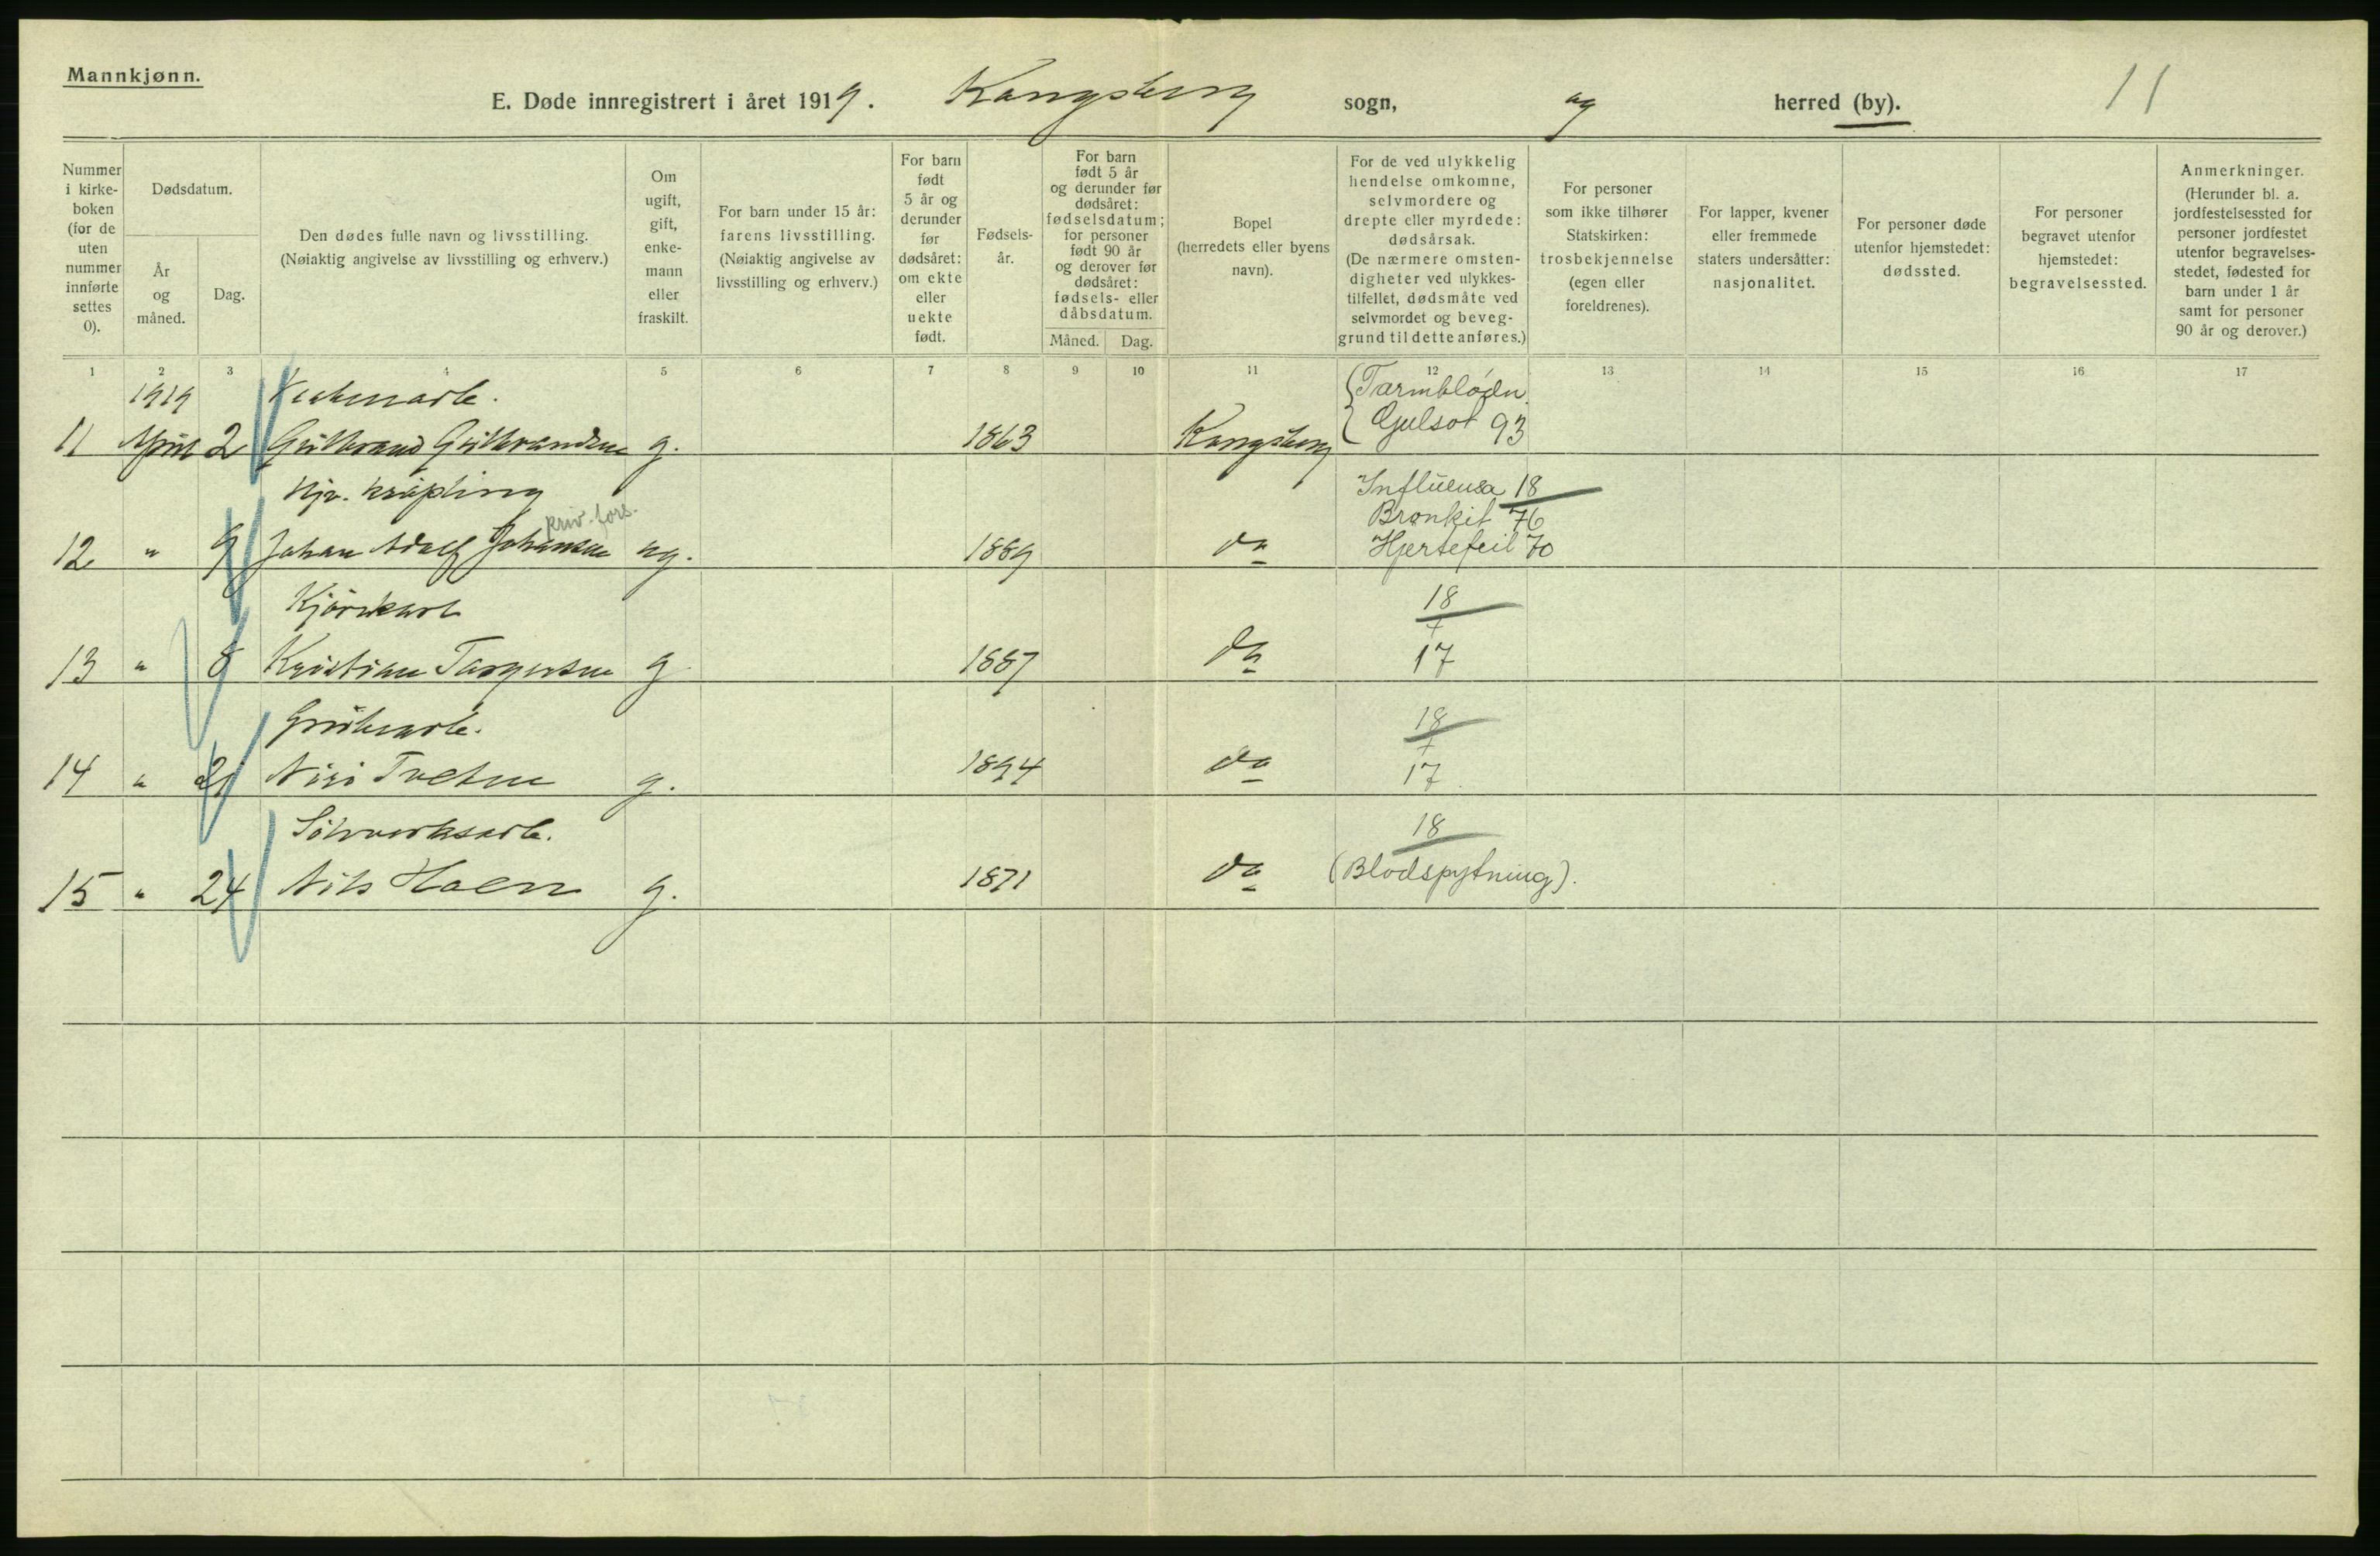 Mannkjønn.
E. Døde innregistrert i året 1919. Kongsberg sogn, og herred (by). 11
Nummer i kirke-boken (for de uten nummer innførte settes 0).
Dødsdatum.
År og måned.
Dag.
Den dødes fulle navn og livsstilling.
(Nøiaktig angivelse av livsstilling og erhverv.)
Om ugift, gift, enke-mann eller fraskilt.
For barn under 15 år: farens livsstilling. (Nøiaktig angivelse av livsstilling og erhverv.)
For barn født 5 år og derunder før dødsåret: om ekte eller uekte født.
Fødsels-år.
For barn født 5 år og derunder før dødsåret: fødselsdatum; for personer født 90 år og derover før dødsåret: fødsels- eller dåbsdatum.
Måned. Dag.
Bopel (herredets eller byens navn).
For de ved ulykkelig hendelse omkomne, selvmordere og drepte eller myrdede: dødsårsak. (De nærmere omsten-digheter ved ulykkes-tilfellet, dødsmåte ved selvmordet og beveg-grund til dette anføres.)
For personer som ikke tilhører Statskirken: trosbekjennelse (egen eller foreldrenes).
For lapper, kvener eller fremmede staters undersåtter: nasjonalitet.
For personer døde utenfor hjemstedet: dødssted.
For personer begravet utenfor hjemstedet: begravelsessted.
Anmerkninger. (Herunder bl. a. jordfestelsessted for personer jordfestet utenfor begravelses-stedet, fødested for barn under 1 år samt for personer 90 år og derover.)
1 2 3 4 5 6 7 8 9 10 11 12 13 14 15 16 17
1919 Tarmblødn.
11 April 2 Gulbrand Gulbrandsen g. 1863 Kongsberg Gulsot 93
Hjv. krøpling Influensa 18
priv. fors. Bronkit 76
12 " 9 Johan Adolf Johansen ug. 1889 do Hjertefeil 70
Kjørekarl 18
+
13 " 8 Kristian Torgersen g 1887 do 17
Grubearb. 18
+
14 " 21 Tveten g. 1894 do 17
Sølvverksarb. 18
15 " 24 Nils Hoen g. 1871 do (Blodspytning).